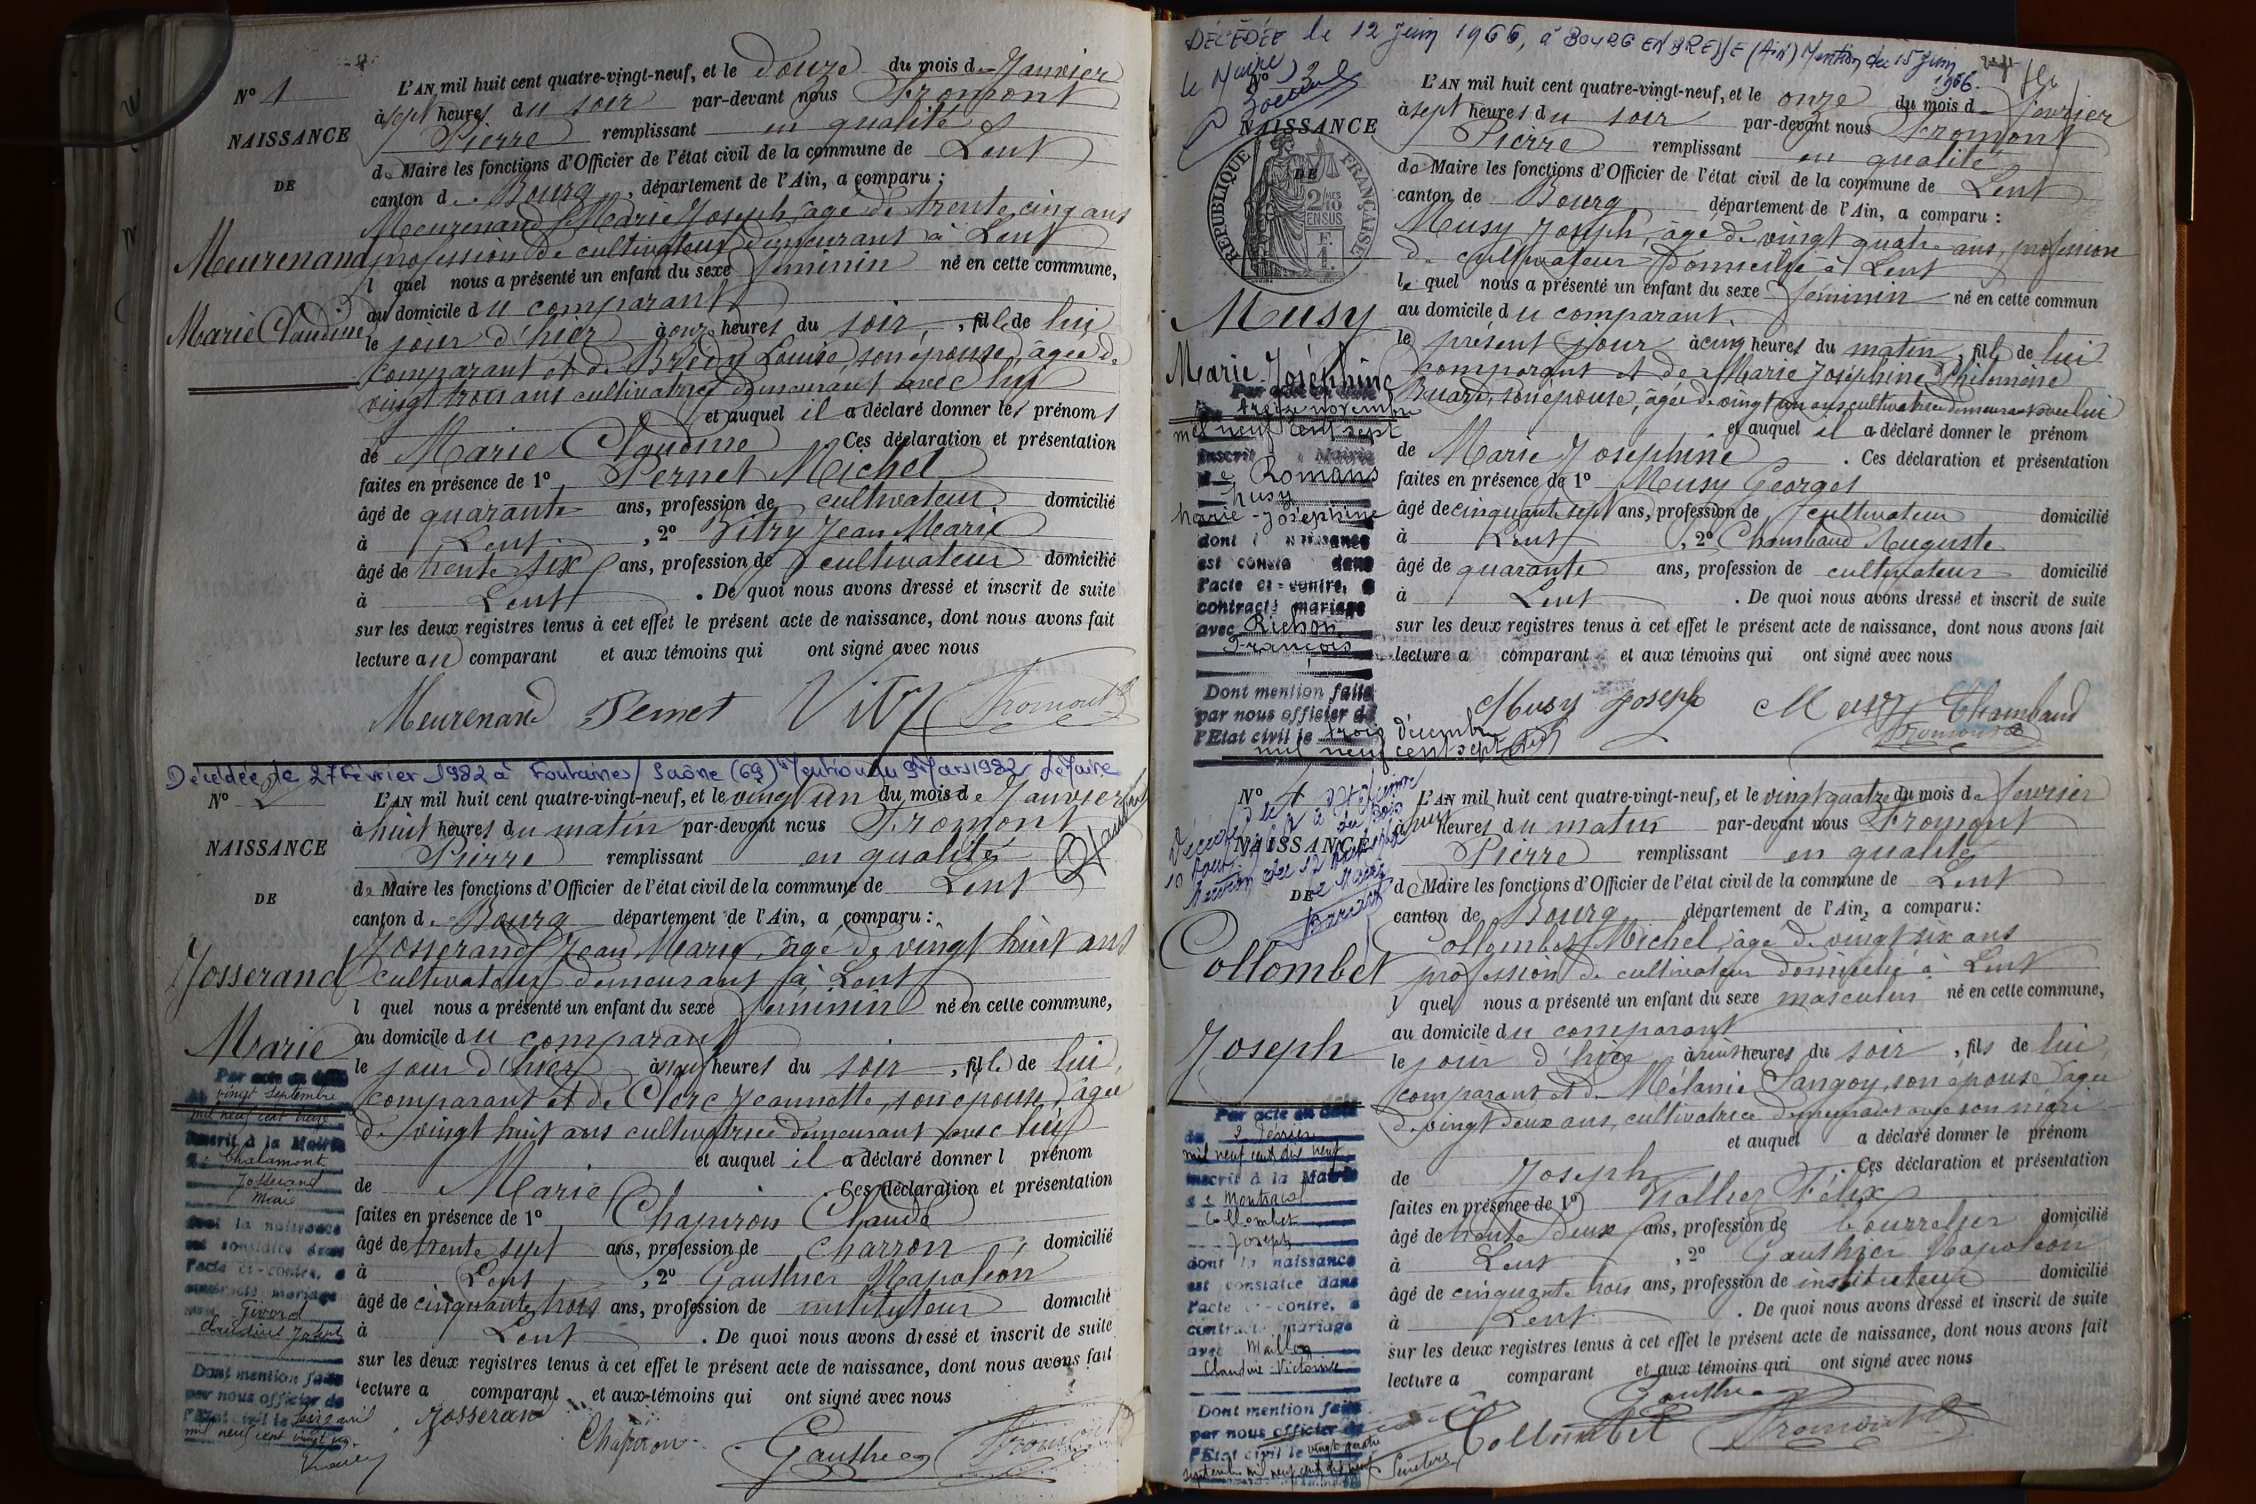 N° 1
NAISSANCE
DE
Meurenand
Marie Claudine
L'AN mil huit cent quatre-vingt-neuf, et le douze du mois de Janvier
à sept heures du soir par-devant nous Fromont
Pierre remplissant en qualité
de Maire les fonctions d'Officier de l'état civil de la commune de Lent
canton de Bourg, département de l'Ain, a comparu :
Meurenand Marie Joseph, âgé de trente cinq ans
profession de cultivateur demeurant à Lent
l quel nous a présenté un enfant du sexe féminin né en cette commune,
au domicile du comparant
le jour d'hier à onze heures du soir, fille de lui
comparant et de Louise, son épouse, âgée de
vingt trois ans cultivatrice demeurant avec lui
et auquel il a déclaré donner les prénoms
de Marie Claudine Ces déclaration et présentation
faites en présence de 1° Pernet Michel
âgé de quarante ans, profession de cultivateur domicilié
à Lent, 2° Vitry Jean Marie
âgé de trente six ans, profession de cultivateur domicilié
à Lent. De quoi nous avons dressé et inscrit de suite
sur les deux registres tenus à cet effet le présent acte de naissance, dont nous avons fait
lecture au comparant et aux témoins qui ont signé avec nous
Meurenand Pernet Vitry Fromont
Décédée le 27 Février 1982 à Fontaines/Saône (69) Mention du 9 Mars 1982 Le Maire
N° 2
NAISSANCE
DE
Josserand
Marie
Par acte en date
du vingt septembre
mil neuf cent treize
inscrit à la Mairie
de Chalamont
Josserand
Marie
dont la naissance
est constatée dans
l'acte ci-contre, a
contracté mariage
avec Givord
Claudius Joseph
Dont mention faite
par nous officier de
l'Etat civil le
mil neuf cent vingt
L'AN mil huit cent quatre-vingt-neuf, et le vingt un du mois de Janvier
à huit heures du matin par-devant nous Fromont
Pierre remplissant en qualité
de Maire les fonctions d'Officier de l'état civil de la commune de Lent
canton de Bourg département de l'Ain, a comparu :
Josserand Jean Marie, âgé de vingt huit ans
cultivateur demeurant à Lent
l quel nous a présenté un enfant du sexe féminin né en cette commune,
au domicile du comparant
le jour d'hier à neuf heures du soir, fille de lui
comparant et de Clerc Jeannette, son épouse, âgée
de vingt huit ans cultivatrice demeurant avec lui
et auquel il a déclaré donner l prénom
de Marie. Ces déclaration et présentation
faites en présence de 1° Chapiron Claude
âgé de trente sept ans, profession de charron, domicilié
à Lent, 2° Gauthier Napoléon
âgé de cinquante trois ans, profession de instituteur domicilié
à Lent. De quoi nous avons dressé et inscrit de suite
sur les deux registres tenus à cet effet le présent acte de naissance, dont nous avons fait
lecture a comparant et aux témoins qui ont signé avec nous
Josserand Chapiron Gauthier Fromont
DÉCÉDÉE le 12 Juin 1966, à BOURG EN BRESSE (Ain) Mention du 15 Juin
1966.
le Maire
N° 3
NAISSANCE
DE
REPUBLIQUE FRANÇAISE
2/10 EN SUS
Musy
Marie Joséphine
Par acte en date
du treize novembre
mil neuf cent sept
inscrit à la Mairie
de Romans
Musy
Marie-Joséphine
dont la naissance
est constatée dans
l'acte ci-contre, a
contracté mariage
avec Richon
François
Dont mention faite
par nous officier de
l'Etat civil le trois décembre
mil neuf cent sept
L'AN mil huit cent quatre-vingt-neuf, et le onze du mois de février
à sept heures du soir par-devant nous Fromont
Pierre remplissant en qualité
de Maire les fonctions d'Officier de l'état civil de la commune de Lent
canton de Bourg département de l'Ain, a comparu :
Musy Joseph, âgé de vingt quatre ans, profession
de cultivateur domicilié à Lent
le quel nous a présenté un enfant du sexe féminin né en cette commun
au domicile du comparant.
le présent jour à cinq heures du matin, fille de lui
comparant et de Marie Joséphine Philomène
Buard, son épouse, âgée de vingt un ans cultivatrice demeurant avec lui
et auquel il a déclaré donner le prénom
de Marie Joséphine. Ces déclaration et présentation
faites en présence de 1° Musy Georges
âgé de cinquante sept ans, profession de cultivateur domicilié
à Lent, 2° Chambaud Auguste
âgé de quarante ans, profession de cultivateur domicilié
à Lent. De quoi nous avons dressé et inscrit de suite
sur les deux registres tenus à cet effet le présent acte de naissance, dont nous avons fait
lecture a comparant et aux témoins qui ont signé avec nous
Musy Joseph Musy Chambaud
Fromont
N° 4
NAISSANCE
DE
Collombet
Joseph
Par acte en date
du 2 Février
mil neuf cent dix neuf
inscrit à la Mairie
de Montracol
Collombet
Joseph
dont la naissance
est constatée dans
l'acte ci-contre, a
contracté mariage
avec
Claudine Victorine
Dont mention faite
par nous officier de
l'Etat civil le vingt quatre
septembre mil neuf cent dix neuf
L'AN mil huit cent quatre-vingt-neuf, et le vingt quatre du mois de février
à heures du matin par-devant nous Fromont
Pierre remplissant en qualité
de Maire les fonctions d'Officier de l'état civil de la commune de Lent
canton de Bourg département de l'Ain, a comparu :
Collombet Michel, âgé de vingt six ans
profession de cultivateur domicilié à Lent
l quel nous a présenté un enfant du sexe masculin né en cette commune,
au domicile du comparant
le jour d'hier à heures du soir, fils de lui,
comparant et de Mélanie Sangoy, son épouse, âgée
de vingt deux ans, cultivatrice demeurant avec son mari
et auquel a déclaré donner le prénom
de Joseph Ces déclaration et présentation
faites en présence de 1° Félix
âgé de trente deux ans, profession de bourrelier domicilié
à Lent, 2° Gauthier Napoléon
âgé de cinquante trois ans, profession de instituteur domicilié
à Lent. De quoi nous avons dressé et inscrit de suite
sur les deux registres tenus à cet effet le présent acte de naissance, dont nous avons fait
lecture a comparant et aux témoins qui ont signé avec nous
Gauthier
Collombet Fromont